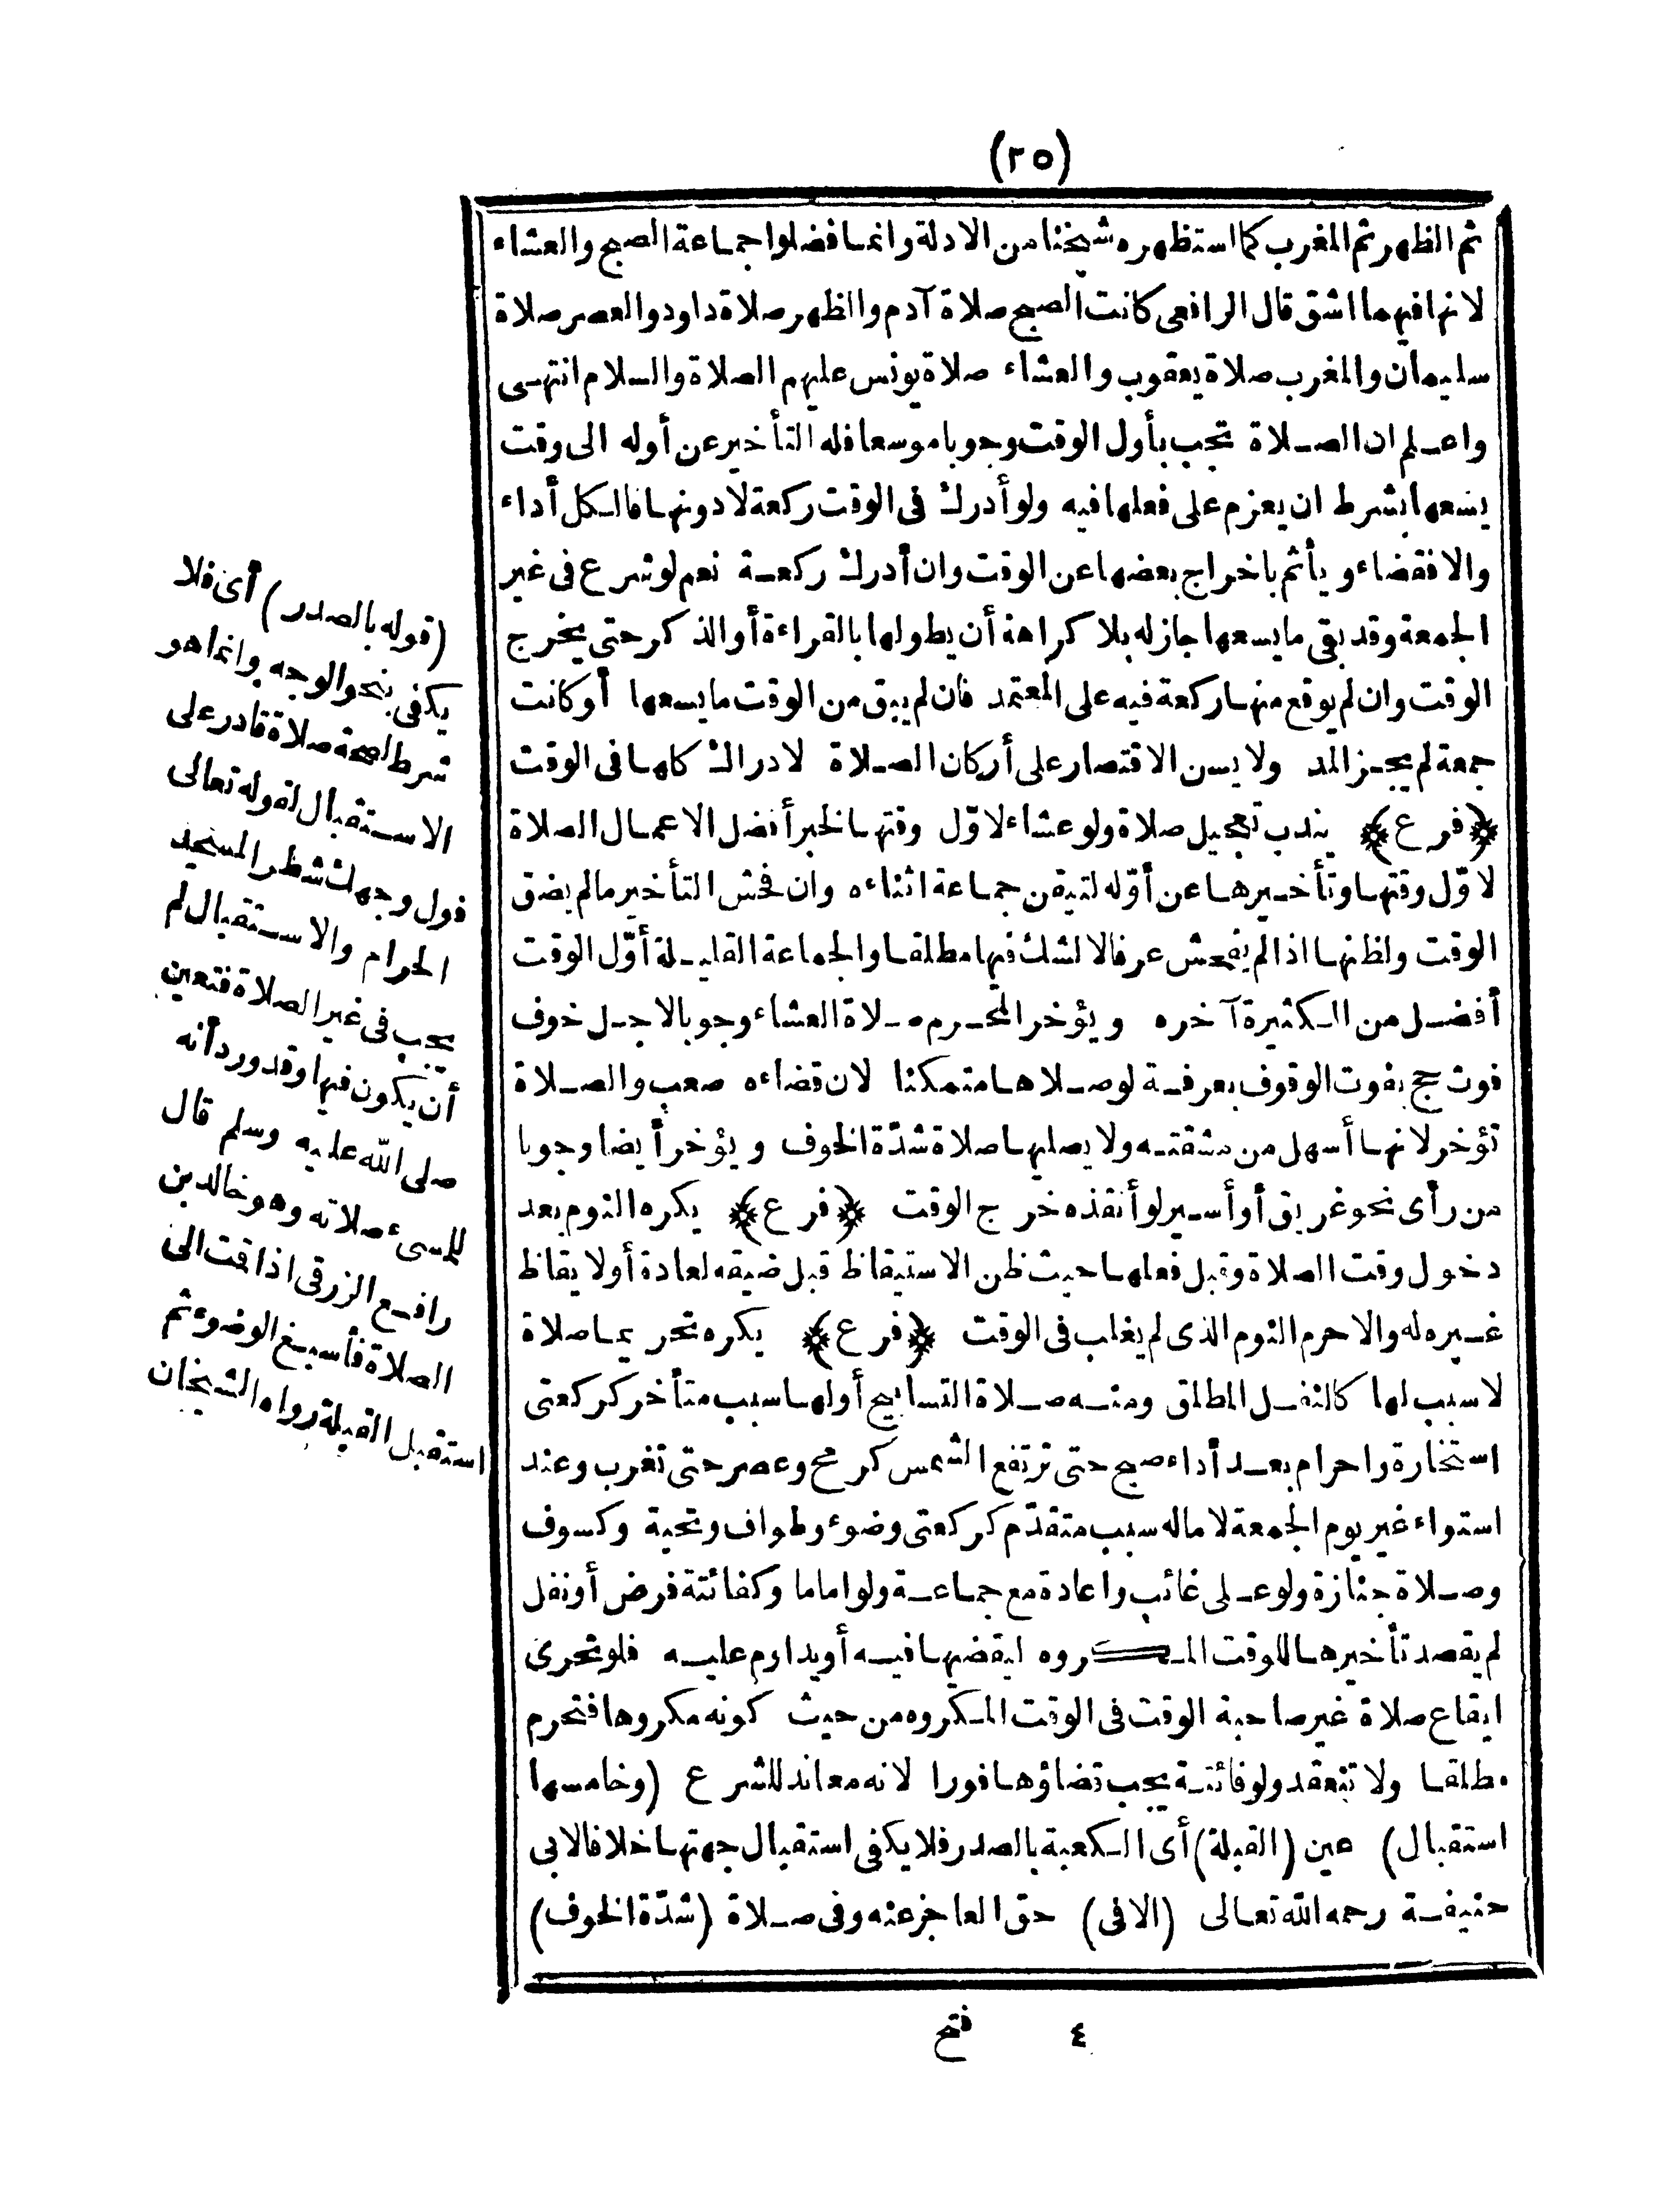 (٢٥)
ثم الظهر ثم المغرب كما استظهره شيخنا من الادلة وانما فضلوا جماعة الصبح والعشاء
لانها فيهما اشق قال الرافعى كانت الصبح صلاة آدم والظهر صلاة داود والعصر صلاة
سليمان والمغرب صلاة يعقوب والعشاء صلاة يونس عليهم الصلاة والسلام انتهى
واعلم ان الصلاة تجب بأول الوقت وجوبا موسعا فله التأخير عن أوله الى وقت
يسعها بشرط ان يعزم على فعلها فيه ولو أدرك فى الوقت ركعة لا دونها فالكل أداء
والا فقضاء ويأثم باخراج بعضها عن الوقت وان أدرك ركعة نعم لو شرع فى غير
الجمعة وقد بقى ما يسعها جاز له بلا كراهة أن يطولها بالقراءة أو الذكر حتى يخرج
الوقت وان لم يوقع منها ركعة فيه على المعتمد فان لم يبق من الوقت ما يسعها أو كانت
جمعة لم يجز المد ولا يسن الاقتصار على أركان الصلاة لادراك كلها فى الوقت
﴿فرع﴾ يندب تعجيل صلاة ولو عشاء لاوّل وقتها لخبر أفضل الاعمال الصلاة
لاوّل وقتها وتأخيرها عن أوّله لتيقن جماعة اثناءه وان فحش التأخير ما لم يضق
الوقت ولظنها اذا لم يفحش عرفا لا لشك فيها مطلقا والجماعة القليلة أوّل الوقت
أفضل من الكثيرة آخره ويؤخر المحرم صلاة العشاء وجوبا لاجل خوف
فوت حج بفوت الوقوف بعرفة لو صلاها متمكنا لان قضاءه صعب والصلاة
تؤخر لانها أسهل من مشقته ولا يصليها صلاة شدّة الخوف ويؤخر أيضا وجوبا
من رأى نحو غريق أو أسير لو أنقذه خرج الوقت ﴿فرع﴾ يكره النوم بعد
دخول وقت الصلاة وقبل فعلها حيث ظن الاستيقاظ قبل ضيقه لعادة أو لايقاظ
غيره له والا حرم النوم الذى لم يغلب فى الوقت ﴿فرع﴾ يكره تحريما صلاة
لا سبب لها كالنفل المطلق ومنه صلاة التسابيح أولها سبب متأخر كركعتى
استخارة واحرام بعد أداء صبح حتى ترتفع الشمس كرمح وعصر حتى تغرب وعند
استواء غير يوم الجمعة لا ماله سبب متقدّم كركعتى وضوء وطواف وتحية وكسوف
وصلاة جنازة ولو على غائب واعادة مع جماعة ولو اماما وكفائتة فرض أو نفل
لم يقصد تأخيرها للوقت المكروه ليقضيها فيه أو يداوم عليه فلو تحرى
ايقاع صلاة غير صاحبة الوقت فى الوقت المكروه من حيث كونه مكروها فتحرم
مطلقا ولا تنعقد ولو فائتة يجب قضاؤها فورا لانه معاند للشرع (وخامسها
استقبال) عين (القبلة) أى الكعبة بالصدر فلا يكفى استقبال جهتها خلافا لابى
حنيفة رحمه الله تعالى (الا فى) حق العاجز عنه وفى صلاة (شدّة الخوف)
٤ فتح
(قوله بالصدر) أى فلا
يكفى بنحو الوجه وانما هو
شرط لصحة صلاة قادر على
الاستقبال لقوله تعالى
فول وجهك شطر المسجد
الحرام والاستقبال لم
يجب فى غير الصلاة فتعين
أن يكون فيها وقد ورد أنه
صلى الله عليه وسلم قال
للمسىء صلاته وهو خالد بن
رافع الزرقى اذا قمت الى
الصلاة فأسبغ الوضوء ثم
استقبل القبلة رواه الشيخان